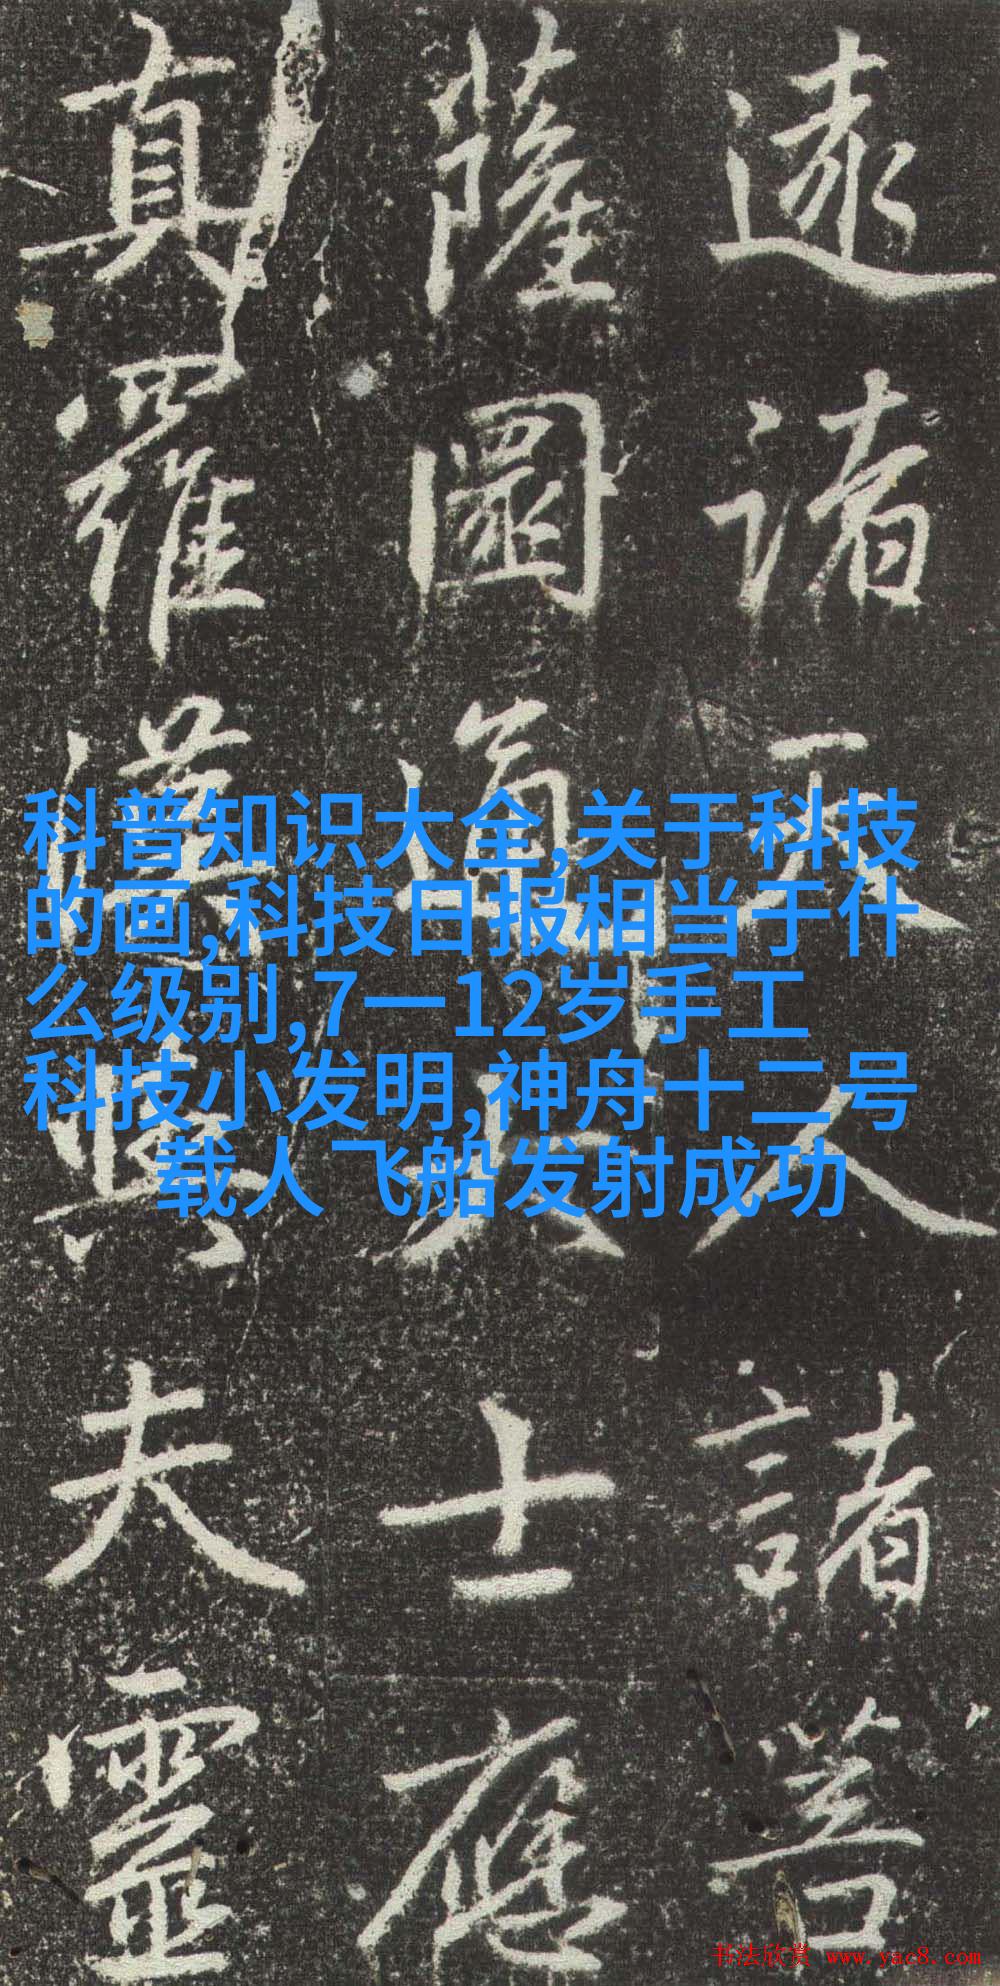 逮諸天人諸菩
薩圓通大士應
真羅漢與夫靈
科普知识大全,关于科技
的画,科技日报相当于什
么级别,7一12岁手工
科技小发明,神舟十二号
载人飞船发射成功
书法欣赏 www.yac8.com